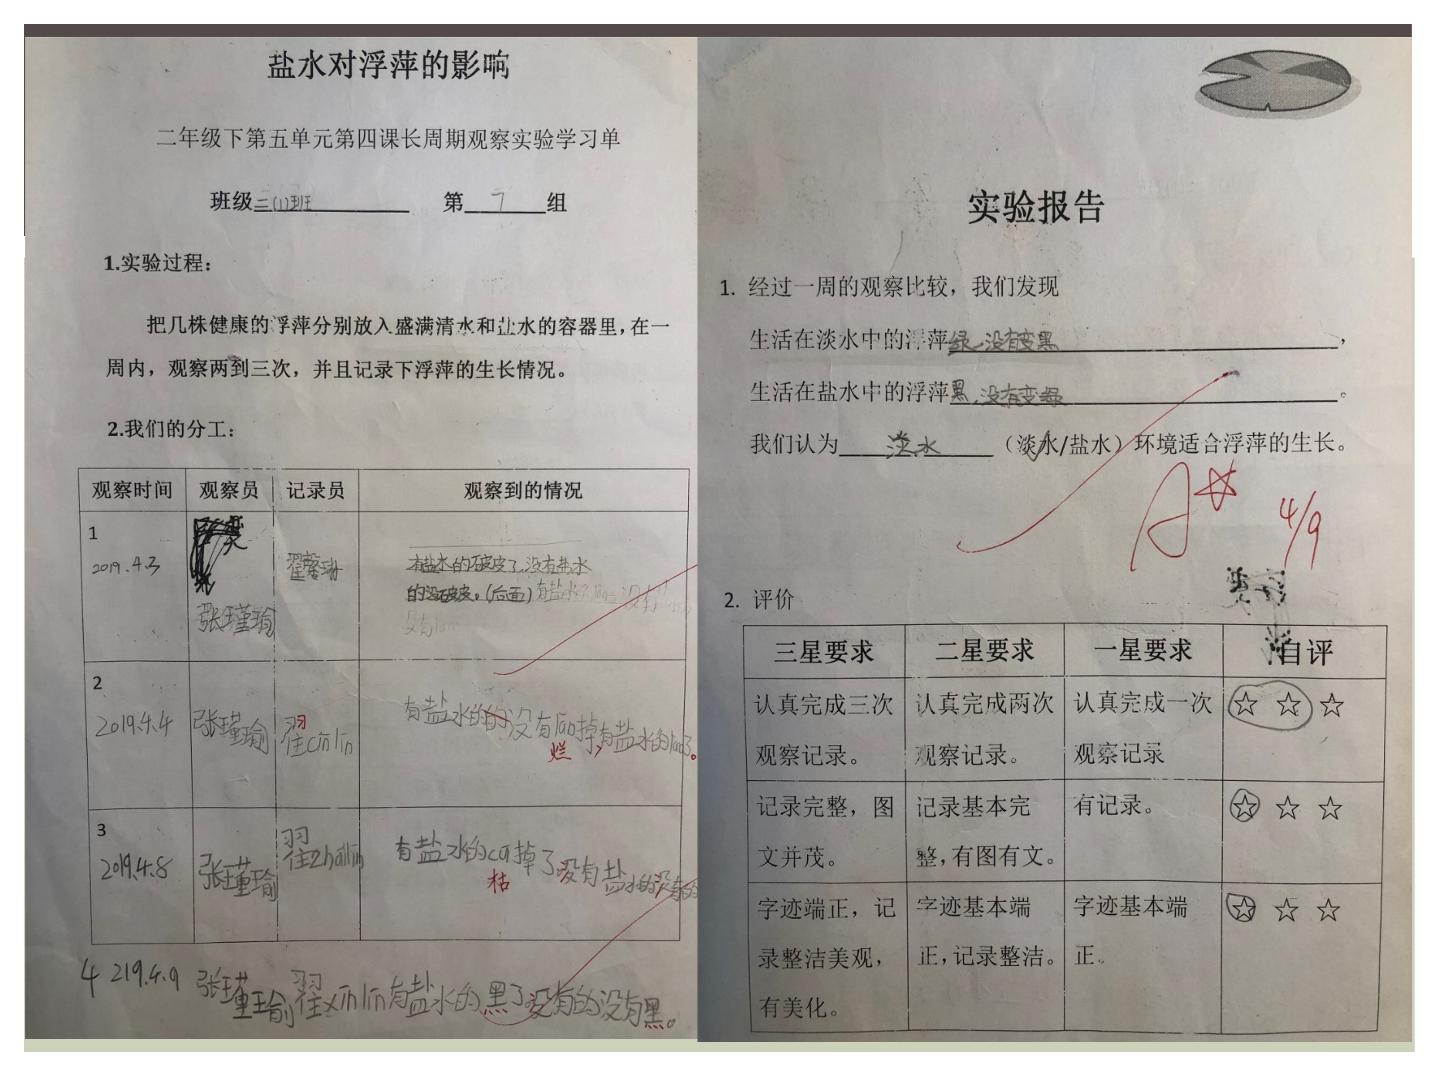 盐水对浮萍的影响
二年级下第五单元第四课长周期观察实验学习单
班级三(1)班 第7组
1.实验过程：
把几株健康的浮萍分别放入盛满清水和盐水的容器里，在一
周内，观察两到三次，并且记录下浮萍的生长情况。
2.我们的分工：
观察时间 观察员 记录员 观察到的情况
1
2019.4.3
张瑾瑜
有盐水的破皮了，没有盐水
的没破皮。(后面)
2
2019.4.4 张瑾瑜 翟cin lin
有盐水的的没有lan掉有盐水的lan了。
烂，
3
2019.4.8 张瑾瑜
有盐水的ca掉了没有盐水的
枯
4 219.4.9 张瑾瑜翟xin lin有盐水的黑了没有的没有黑。
实验报告
1. 经过一周的观察比较，我们发现
生活在淡水中的浮萍绿，没有变黑，
生活在盐水中的浮萍黑，没有变绿。
我们认为淡水（淡水/盐水）环境适合浮萍的生长。
A☆ 4/9
2. 评价
三星要求 二星要求 一星要求 自评
认真完成三次观察记录。 认真完成两次观察记录。 认真完成一次观察记录 ☆ ☆ ☆
记录完整，图文并茂。 记录基本完整，有图有文。 有记录。 ☆ ☆ ☆
字迹端正，记录整洁美观，有美化。 字迹基本端正，记录整洁。 字迹基本端正。 ☆ ☆ ☆